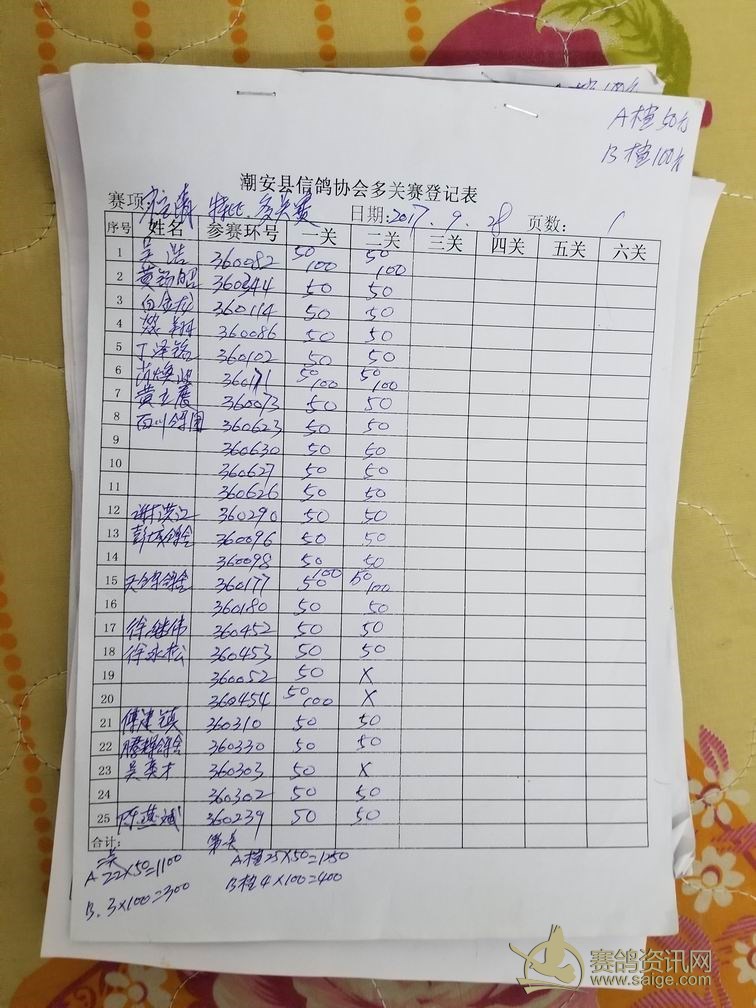 A档50元
B档100元
潮安县信鸽协会多关赛登记表
赛项: 特比 多关赛 日期:2017.9.28 页数: 1
序号 姓名 参赛环号 一关 二关 三关 四关 五关 六关
1 吴浩 360082 50 100 50 100
2 黄锡昭 360344 50 50
3 360114 50 50
4 360086 50 50
5 丁泽铭 360102 50 50
6 360171 50 100 50 100
7 黄立 360073 50 50
8 百川鸽园 360623 50 50
9 360630 50 50
10 360627 50 50
11 360626 50 50
12 谢洪江 360290 50 50
13 彭城鸽舍 360096 50 50
14 360098 50 50
15 鸽舍 360177 50 100 50 100
16 360180 50 50
17 徐继伟 360452 50 50
18 徐永松 360453 50 50
19 360052 50 X
20 360454 50 100 X
21 傅建镇 360310 50 50
22 腾辉鸽舍 360330 50 50
23 吴英才 360303 50 X
24 360302 50 50
25 陈 斌 360239 50 50
合计:
二关 第一关
A 22×50=1100 A档25×50=1250
B. 3×100=300 B档4×100=400
赛鸽资讯网
www.saige.com